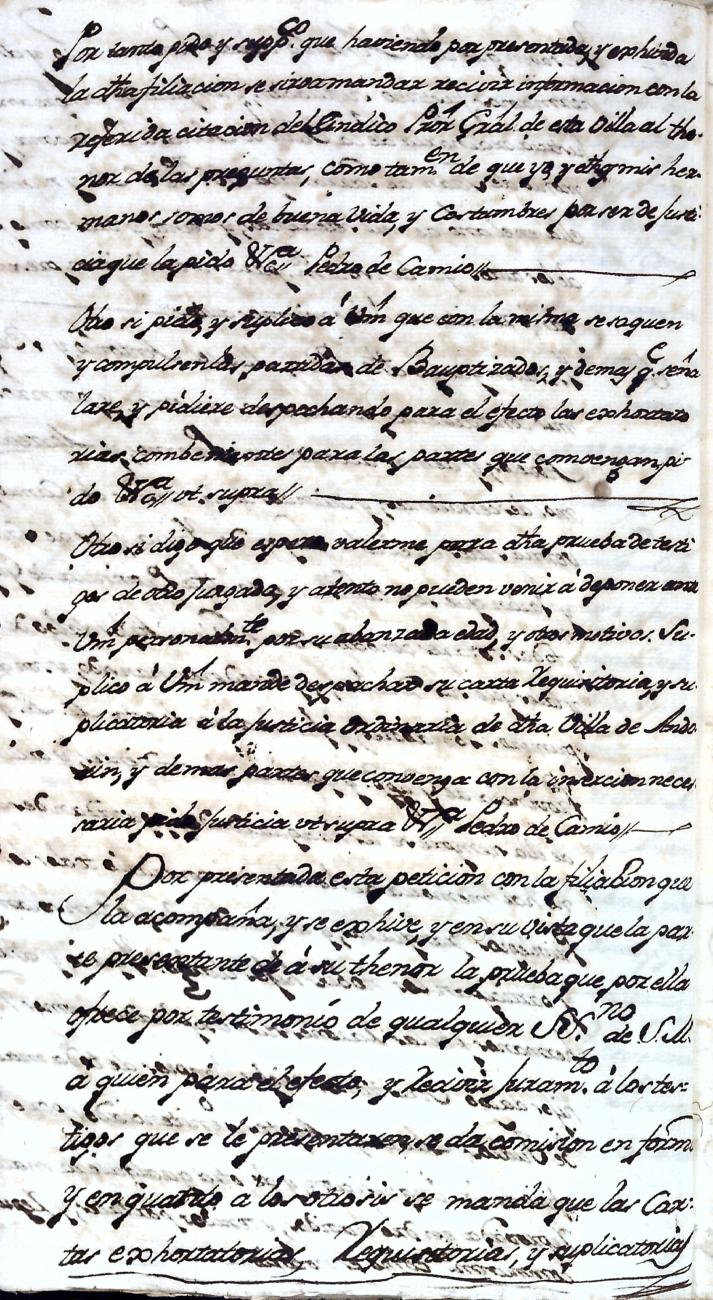 Por tanto pido y supp.co que haviendo por presentada, y exhivida
la dha filiacion se sirva mandar recivir informacion con la
referida citacion del Sindico Pror Gràl. de esta Villa al the-
nor de las preguntas, como tam.en de que yo, y dhos mis her-
manos somos de buena vida, y Costumbres por ser de Justi-
cia que la pido &.ca Pedro de Camio//
Otro si pido, y suplico á Vm̃ que con la misma se saquen
y compulsen las partidas de Bauptizados, y demas q.e señá
lare, y pidiere despachando para el efecto las exhortato
rias combenientes para las partes que convengan, pi
do &.ca ut supra//
Otro si digo que espero valerme para dha prueba de testi
gos de otro Juzgado, y atento no pueden venir á deponer ante
Vm̃ personalm.te por su abanzada edad, y otros motivos. Su-
plico á Vm̃ mande despachar su carta Requisitoria, y su
plicatoria á la Justicia Ordinaria de dha Villa de Ando
ain, y demas partes que convenga con la insercion nece
saria pido Justicia ut supra &.ca Pedro de Camio//
Por presentada esta peticion con la filiacion que
la acompaña, y se exhive, y en su vista que la par-
te presentante dé á su thenor la prueba que por ella
ofrece por testimonio de qualquier SS.no de S.M.
á quien para el efecto, y Recivir Juram.to á los tes-
tigos que se le presentaren, se da comision en forma
y en quanto á los otrosis se manda que las Car-
tas exhortatorias, Requisitorias, y suplicatorias